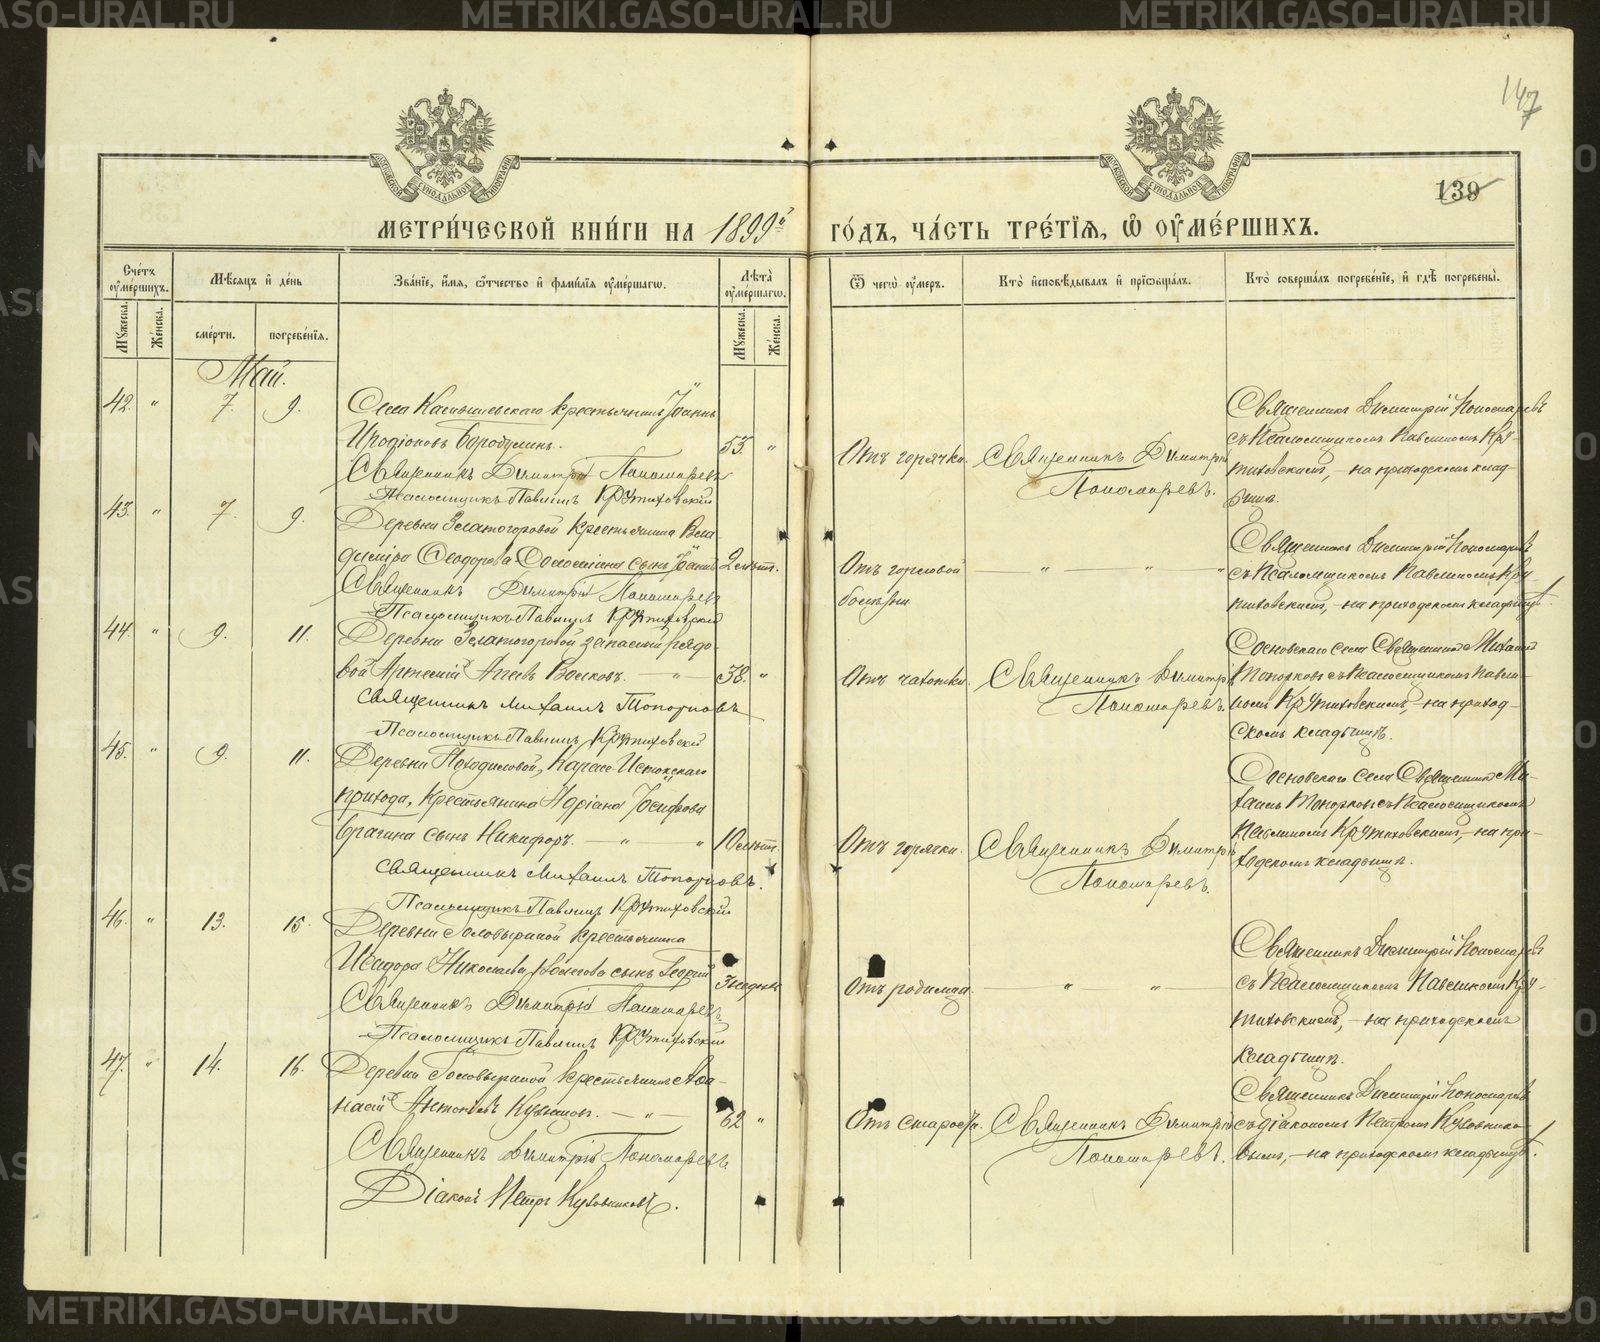 147
139
МЕТРИ́ЧЕСКОЙ КНИ́ГИ НА 1899й ГО́ДЪ, ЧА́СТЬ ТРЕ́ТІѦ, Ѡ҆ ОУ҆МЕ́РШИХЪ.
Сче́тъ оу҆ме́ршихъ.
Мꙋжеска.
Же́нска.
Мѣ́сѧцъ и҆ де́нь
сме́рти.
погребе́нїѧ.
Зва́нїе, и҆́мѧ, ѻ҆́тчество и҆ фамилїѧ оу҆ме́ршагѡ.
Лѣта̀ оу҆ме́ршагѡ.
Мꙋжеска.
Же́нска.
Ѿ чегѡ̀ оу҆́меръ.
Кто̀ и҆сповѣ́дывалъ и҆ прїѡбща́лъ.
Кто̀ соверша́лъ погребе́нїе, и҆ гдѣ̀ погребены̀.
Май.
42. " 7. 9.
Села Камышевскаго крестьянинъ Іоаннъ
Иродіоновъ Бородулинъ. 53. "
Священникъ Димитрій Пономаревъ
Псаломщикъ Павлинъ Крутиховскій
Отъ горячки.
Священникъ Димитрій
Пономаревъ.
Священникъ Димитрій Пономаревъ
съ псаломщикомъ Павлиномъ Кру-
тиховскимъ, на приходскомъ клад-
бищѣ.
43. " 7. 9.
Деревни Златогоровой крестьянина Вла
диміра Ѳеодорова сынъ Іоаннъ 2 лѣт.
Священникъ Димитрій Пономаревъ
Псаломщикъ Павлинъ Крутиховскій
Отъ горловой
болѣзни
" " "
Священникъ Димитрій Пономаревъ
съ псаломщикомъ Павлиномъ Кру-
тиховскимъ, на приходскомъ кладбищѣ.
44. " 9. 11.
Деревни Златогоровой запасный рядо-
вой Арсеній Агеевъ Волковъ. " 38. "
Священникъ Михаилъ Топорковъ
Псаломщикъ Павлинъ Крутиховскій
Отъ чахотки.
Священникъ Димитрій
Пономаревъ.
Сосновскаго села Священникъ Михаилъ
Топорковъ съ псаломщикомъ Павли-
номъ Крутиховскимъ, на приход-
скомъ кладбищѣ.
45. " 9. 11.
Деревни Походиловой, Карасье-Истокскаго
прихода, крестьянина Адріана Іосифова
Брагина сынъ Никифоръ. " " 10 лѣт.
Священникъ Михаилъ Топорковъ.
Псаломщикъ Павлинъ Крутиховскій
Отъ горячки.
Священникъ Димитрій
Пономаревъ.
Сосновскаго села Священникъ Ми-
хаилъ Топорковъ съ псаломщикомъ
Павлиномъ Крутиховскимъ, на при-
ходскомъ кладбищѣ.
46. " 13. 15.
Деревни Головыриной крестьянина
Исидора Николаева сынъ Георгій
Священникъ Димитрій Пономаревъ.
Псаломщикъ Павлинъ Крутиховскій
Отъ родимца.
" "
Священникъ Димитрій Пономаревъ
съ псаломщикомъ Павлиномъ Кру-
тиховскимъ, на приходскомъ
кладбищѣ.
47. " 14. 16.
Деревни Головыриной крестьянинъ Аѳа-
насій Антоніевъ " 62 "
Священникъ Димитрій Пономаревъ
Діаконъ Петръ Кузовниковъ.
Отъ старости.
Священникъ Димитрій
Пономаревъ.
Священникъ Димитрій Пономаревъ
съ діакономъ Петромъ Кузовнико-
вымъ, на приходскомъ кладбищѣ.
METRIKI.GASO-URAL.RU